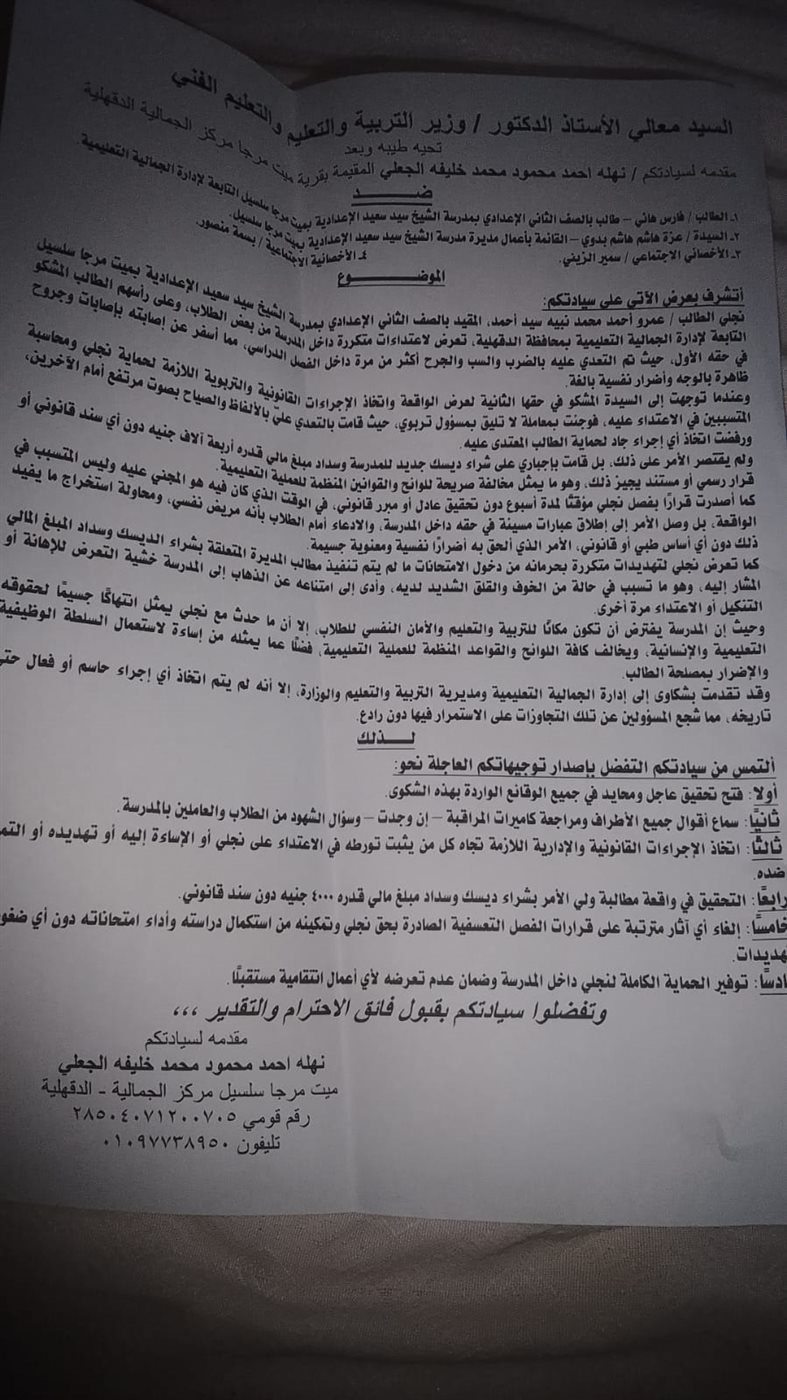 السيد معالي الأستاذ الدكتور / وزير التربية والتعليم والتعليم الفني
تحيه طيبه وبعد
مقدمه لسيادتكم / نهله احمد محمود محمد خليفه الجعلي المقيمة بقرية ميت مرجا مركز الجمالية الدقهلية
ضد
١ـ الطالب / فارس هاني – طالب بالصف الثاني الإعدادي بمدرسة الشيخ سيد سعيد الإعدادية بميت مرجا سلسيل التابعة لإدارة الجمالية التعليمية.
٢ـ السيدة / عزة هاشم هاشم بدوي – القائمة بأعمال مديرة مدرسة الشيخ سيد سعيد الإعدادية بميت مرجا سلسيل.
٣ـ الأخصائي الاجتماعي / سمير الزيني. ٤ـ الأخصائية الاجتماعية / بسمة منصور.
الموضوع
أتشرف بعرض الآتي على سيادتكم:
نجلي الطالب / عمرو أحمد محمد نبيه سيد أحمد، المقيد بالصف الثاني الإعدادي بمدرسة الشيخ سيد سعيد الإعدادية بميت مرجا سلسيل
التابعة لإدارة الجمالية التعليمية بمحافظة الدقهلية، تعرض لاعتداءات متكررة داخل المدرسة من بعض الطلاب، وعلى رأسهم الطالب المشكو
في حقه الأول، حيث تم التعدي عليه بالضرب والسب والجرح أكثر من مرة داخل الفصل الدراسي، مما أسفر عن إصابته بإصابات وجروح
ظاهرة بالوجه وأضرار نفسية بالغة.
وعندما توجهت إلى السيدة المشكو في حقها الثانية لعرض الواقعة واتخاذ الإجراءات القانونية والتربوية اللازمة لحماية نجلي ومحاسبة
المتسببين في الاعتداء عليه، فوجئت بمعاملة لا تليق بمسؤول تربوي، حيث قامت بالتعدي عليّ بالألفاظ والصياح بصوت مرتفع أمام الآخرين،
ورفضت اتخاذ أي إجراء جاد لحماية الطالب المعتدى عليه.
ولم يقتصر الأمر على ذلك، بل قامت بإجباري على شراء ديسك جديد للمدرسة وسداد مبلغ مالي قدره أربعة آلاف جنيه دون أي سند قانوني أو
قرار رسمي أو مستند يجيز ذلك، وهو ما يمثل مخالفة صريحة للوائح والقوانين المنظمة للعملية التعليمية.
كما أصدرت قرارًا بفصل نجلي مؤقتًا لمدة أسبوع دون تحقيق عادل أو مبرر قانوني، في الوقت الذي كان فيه هو المجني عليه وليس المتسبب في
الواقعة، بل وصل الأمر إلى إطلاق عبارات مسيئة في حقه داخل المدرسة، والادعاء أمام الطلاب بأنه مريض نفسي، ومحاولة استخراج ما يفيد
ذلك دون أي أساس طبي أو قانوني، الأمر الذي ألحق به أضرارًا نفسية ومعنوية جسيمة.
كما تعرض نجلي لتهديدات متكررة بحرمانه من دخول الامتحانات ما لم يتم تنفيذ مطالب المديرة المتعلقة بشراء الديسك وسداد المبلغ المالي
المشار إليه، وهو ما تسبب في حالة من الخوف والقلق الشديد لديه، وأدى إلى امتناعه عن الذهاب إلى المدرسة خشية التعرض للإهانة أو
التنكيل أو الاعتداء مرة أخرى.
وحيث إن المدرسة يفترض أن تكون مكانًا للتربية والتعليم والأمان النفسي للطلاب، إلا أن ما حدث مع نجلي يمثل انتهاكًا جسيمًا لحقوقه
التعليمية والإنسانية، ويخالف كافة اللوائح والقواعد المنظمة للعملية التعليمية، فضلًا عما يمثله من إساءة لاستعمال السلطة الوظيفية
والإضرار بمصلحة الطالب.
وقد تقدمت بشكاوى إلى إدارة الجمالية التعليمية ومديرية التربية والتعليم والوزارة، إلا أنه لم يتم اتخاذ أي إجراء حاسم أو فعال حتى
تاريخه، مما شجع المسؤولين عن تلك التجاوزات على الاستمرار فيها دون رادع.
لـذلك
ألتمس من سيادتكم التفضل بإصدار توجيهاتكم العاجلة نحو:
أولا: فتح تحقيق عاجل ومحايد في جميع الوقائع الواردة بهذه الشكوى.
ثانيًا: سماع أقوال جميع الأطراف ومراجعة كاميرات المراقبة – إن وجدت – وسؤال الشهود من الطلاب والعاملين بالمدرسة.
ثالثًا: اتخاذ الإجراءات القانونية والإدارية اللازمة تجاه كل من يثبت تورطه في الاعتداء على نجلي أو الإساءة إليه أو تهديده أو التم
ضده.
رابعًا: التحقيق في واقعة مطالبة ولي الأمر بشراء ديسك وسداد مبلغ مالي قدره ٤٠٠٠ جنيه دون سند قانوني.
خامسًا: إلغاء أي آثار مترتبة على قرارات الفصل التعسفية الصادرة بحق نجلي وتمكينه من استكمال دراسته وأداء امتحاناته دون أي ضغو
هديدات.
ادسًا: توفير الحماية الكاملة لنجلي داخل المدرسة وضمان عدم تعرضه لأي أعمال انتقامية مستقبلًا.
وتفضلوا سيادتكم بقبول فائق الاحترام والتقدير ،،،
مقدمه لسيادتكم
نهله احمد محمود محمد خليفه الجعلي
ميت مرجا سلسيل مركز الجمالية - الدقهلية
رقم قومي ٢٨٥٠٤٠٧١٢٠٠٧٠٥
تليفون ٠١٠٩٧٧٣٨٩٥٠